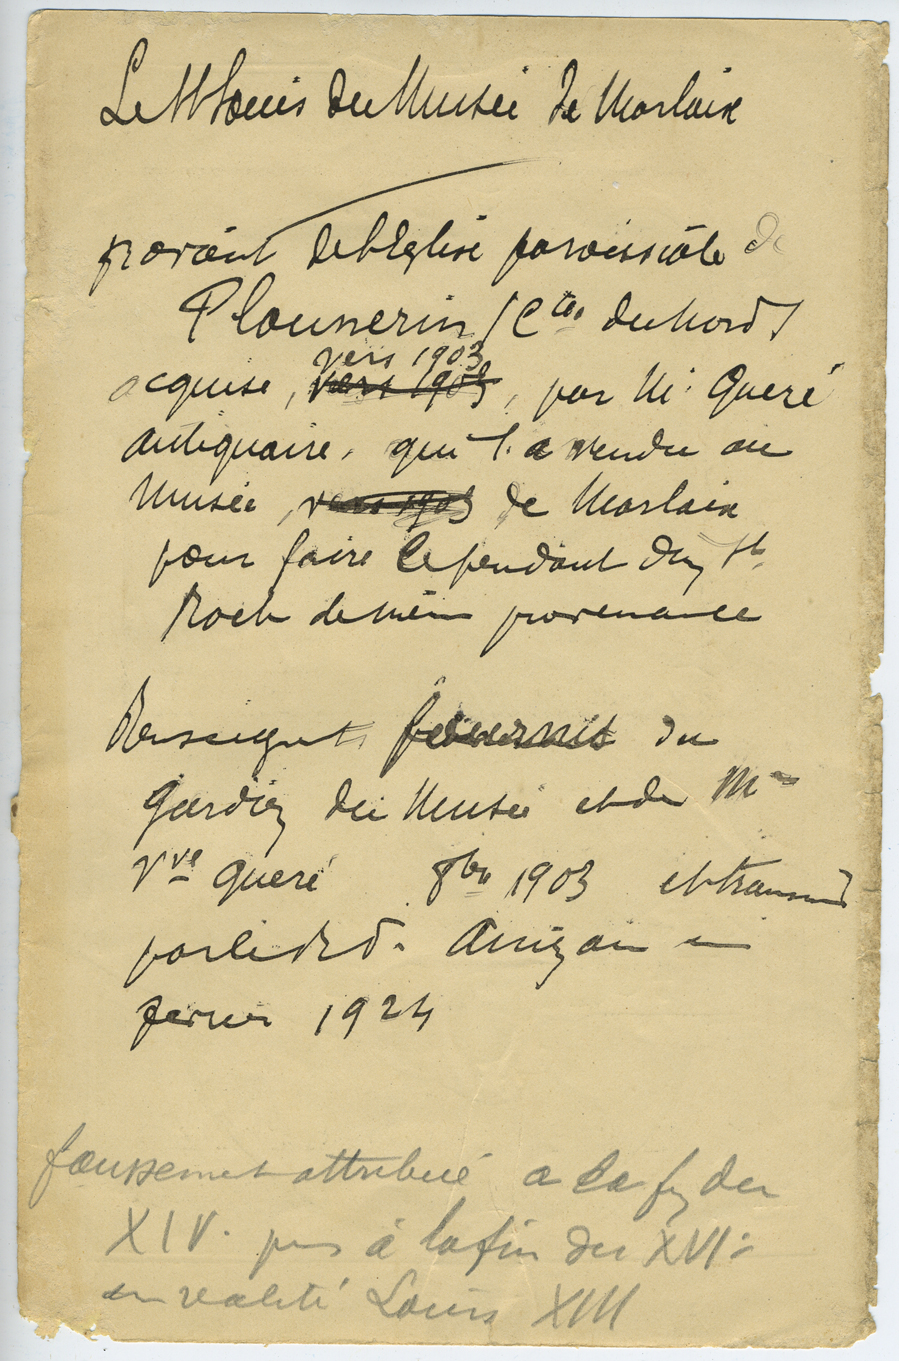 Le St Louis du Musée de Morlaix
provient de l'Eglise paroissiale de
Plounerin (Ctes du Nord)
vers 1903
acquise, vers 1903, par M. Queré
antiquaire, qui l'a vendu au
Musée, vers 1903 de Morlaix
pour faire le pendant du St
Roch de même provenance
Renseignts fournis du
gardien du Musée et de Mme
Vve Queré 8bre 1903 et transmis
par le
février 1924
faussement attribué a la fin du
XIV. puis à la fin du XVIe
en realité Louis XIII